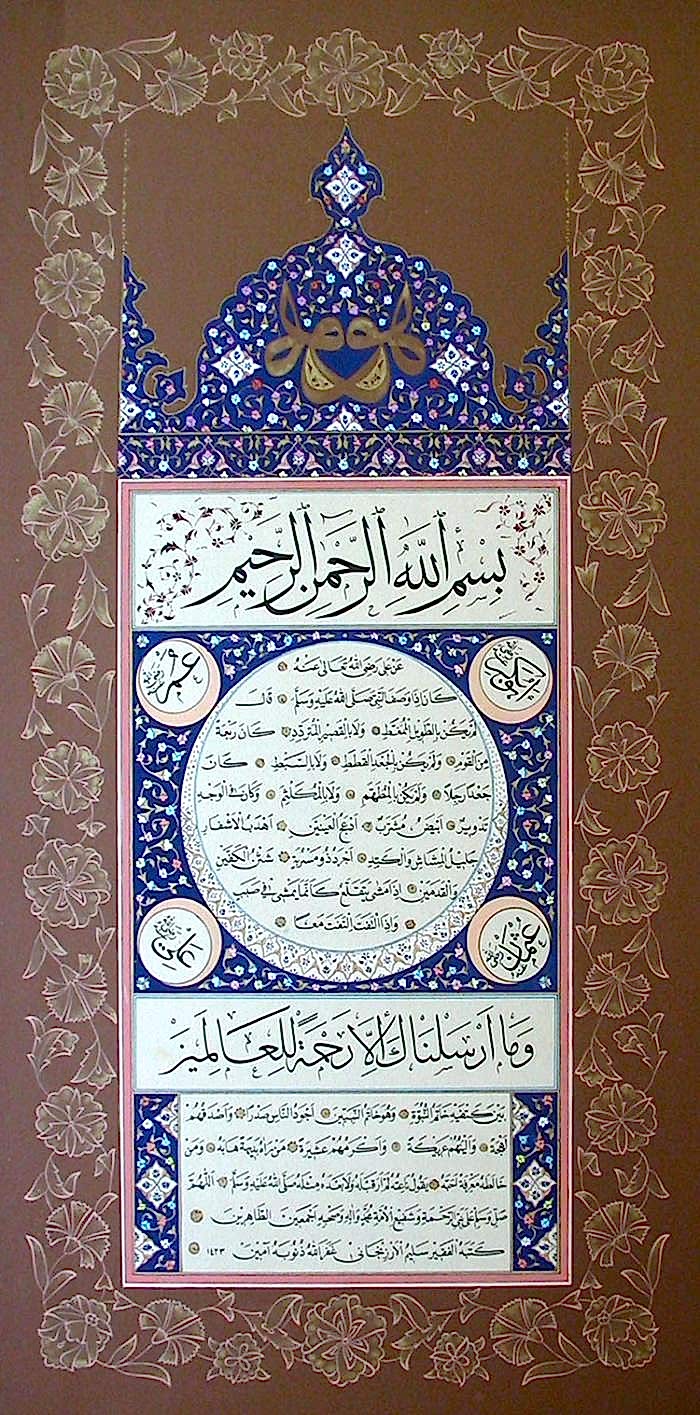 هو هو
بِسْمِ ٱللَّهِ ٱلرَّحْمٰنِ ٱلرَّحِيمِ
ابوبكر رضي الله عنه
عمر رضي الله عنه
عن علي رضي الله تعالى عنه
كان اذا وصف النبي صلى الله عليه وسلم قال
لم يكن بالطويل الممغط ولا بالقصير المتردد كان ربعة
من القوم ولم يكن بالجعد القطط ولا بالسبط كان
جعدا رجلا ولم يكن بالمطهم ولا بالمكلثم وكان في الوجه
تدوير ابيض مشرب ادعج العينين اهدب الاشفار
جليل المشاش والكتد اجرد ذو مسربة شثن الكفين
والقدمين اذا مشى يتقلع كانما يمشي في صبب
واذا التفت التفت معا
عثمان رضي الله عنه
علي رضي الله عنه
وَمَا اَرْسَلْنَاكَ اِلَّا رَحْمَةً لِلْعَالَمِينَ
بين كتفيه خاتم النبوة وهو خاتم النبيين اجود الناس صدرا واصدقهم
لهجة والينهم عريكة واكرمهم عشيرة من رآه بديهة هابه ومن
خالطه معرفة احبه يقول ناعته لم ار قبله ولا بعده مثله صلى الله عليه وسلم اللهم
صل وسلم على نبي الرحمة وشفيع الامة محمد وآله وصحبه اجمعين الطاهرين
كتبه الفقير سليم الارزنجاني غفر الله ذنوبه آمين ١٤٢٣